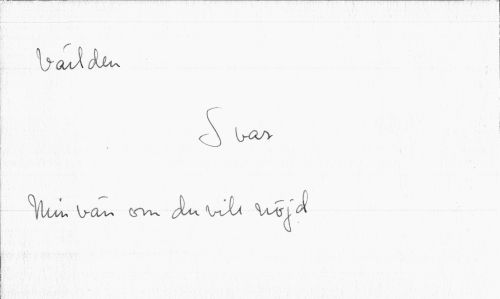 Världen
Svar
Min vän om du vill nöjd